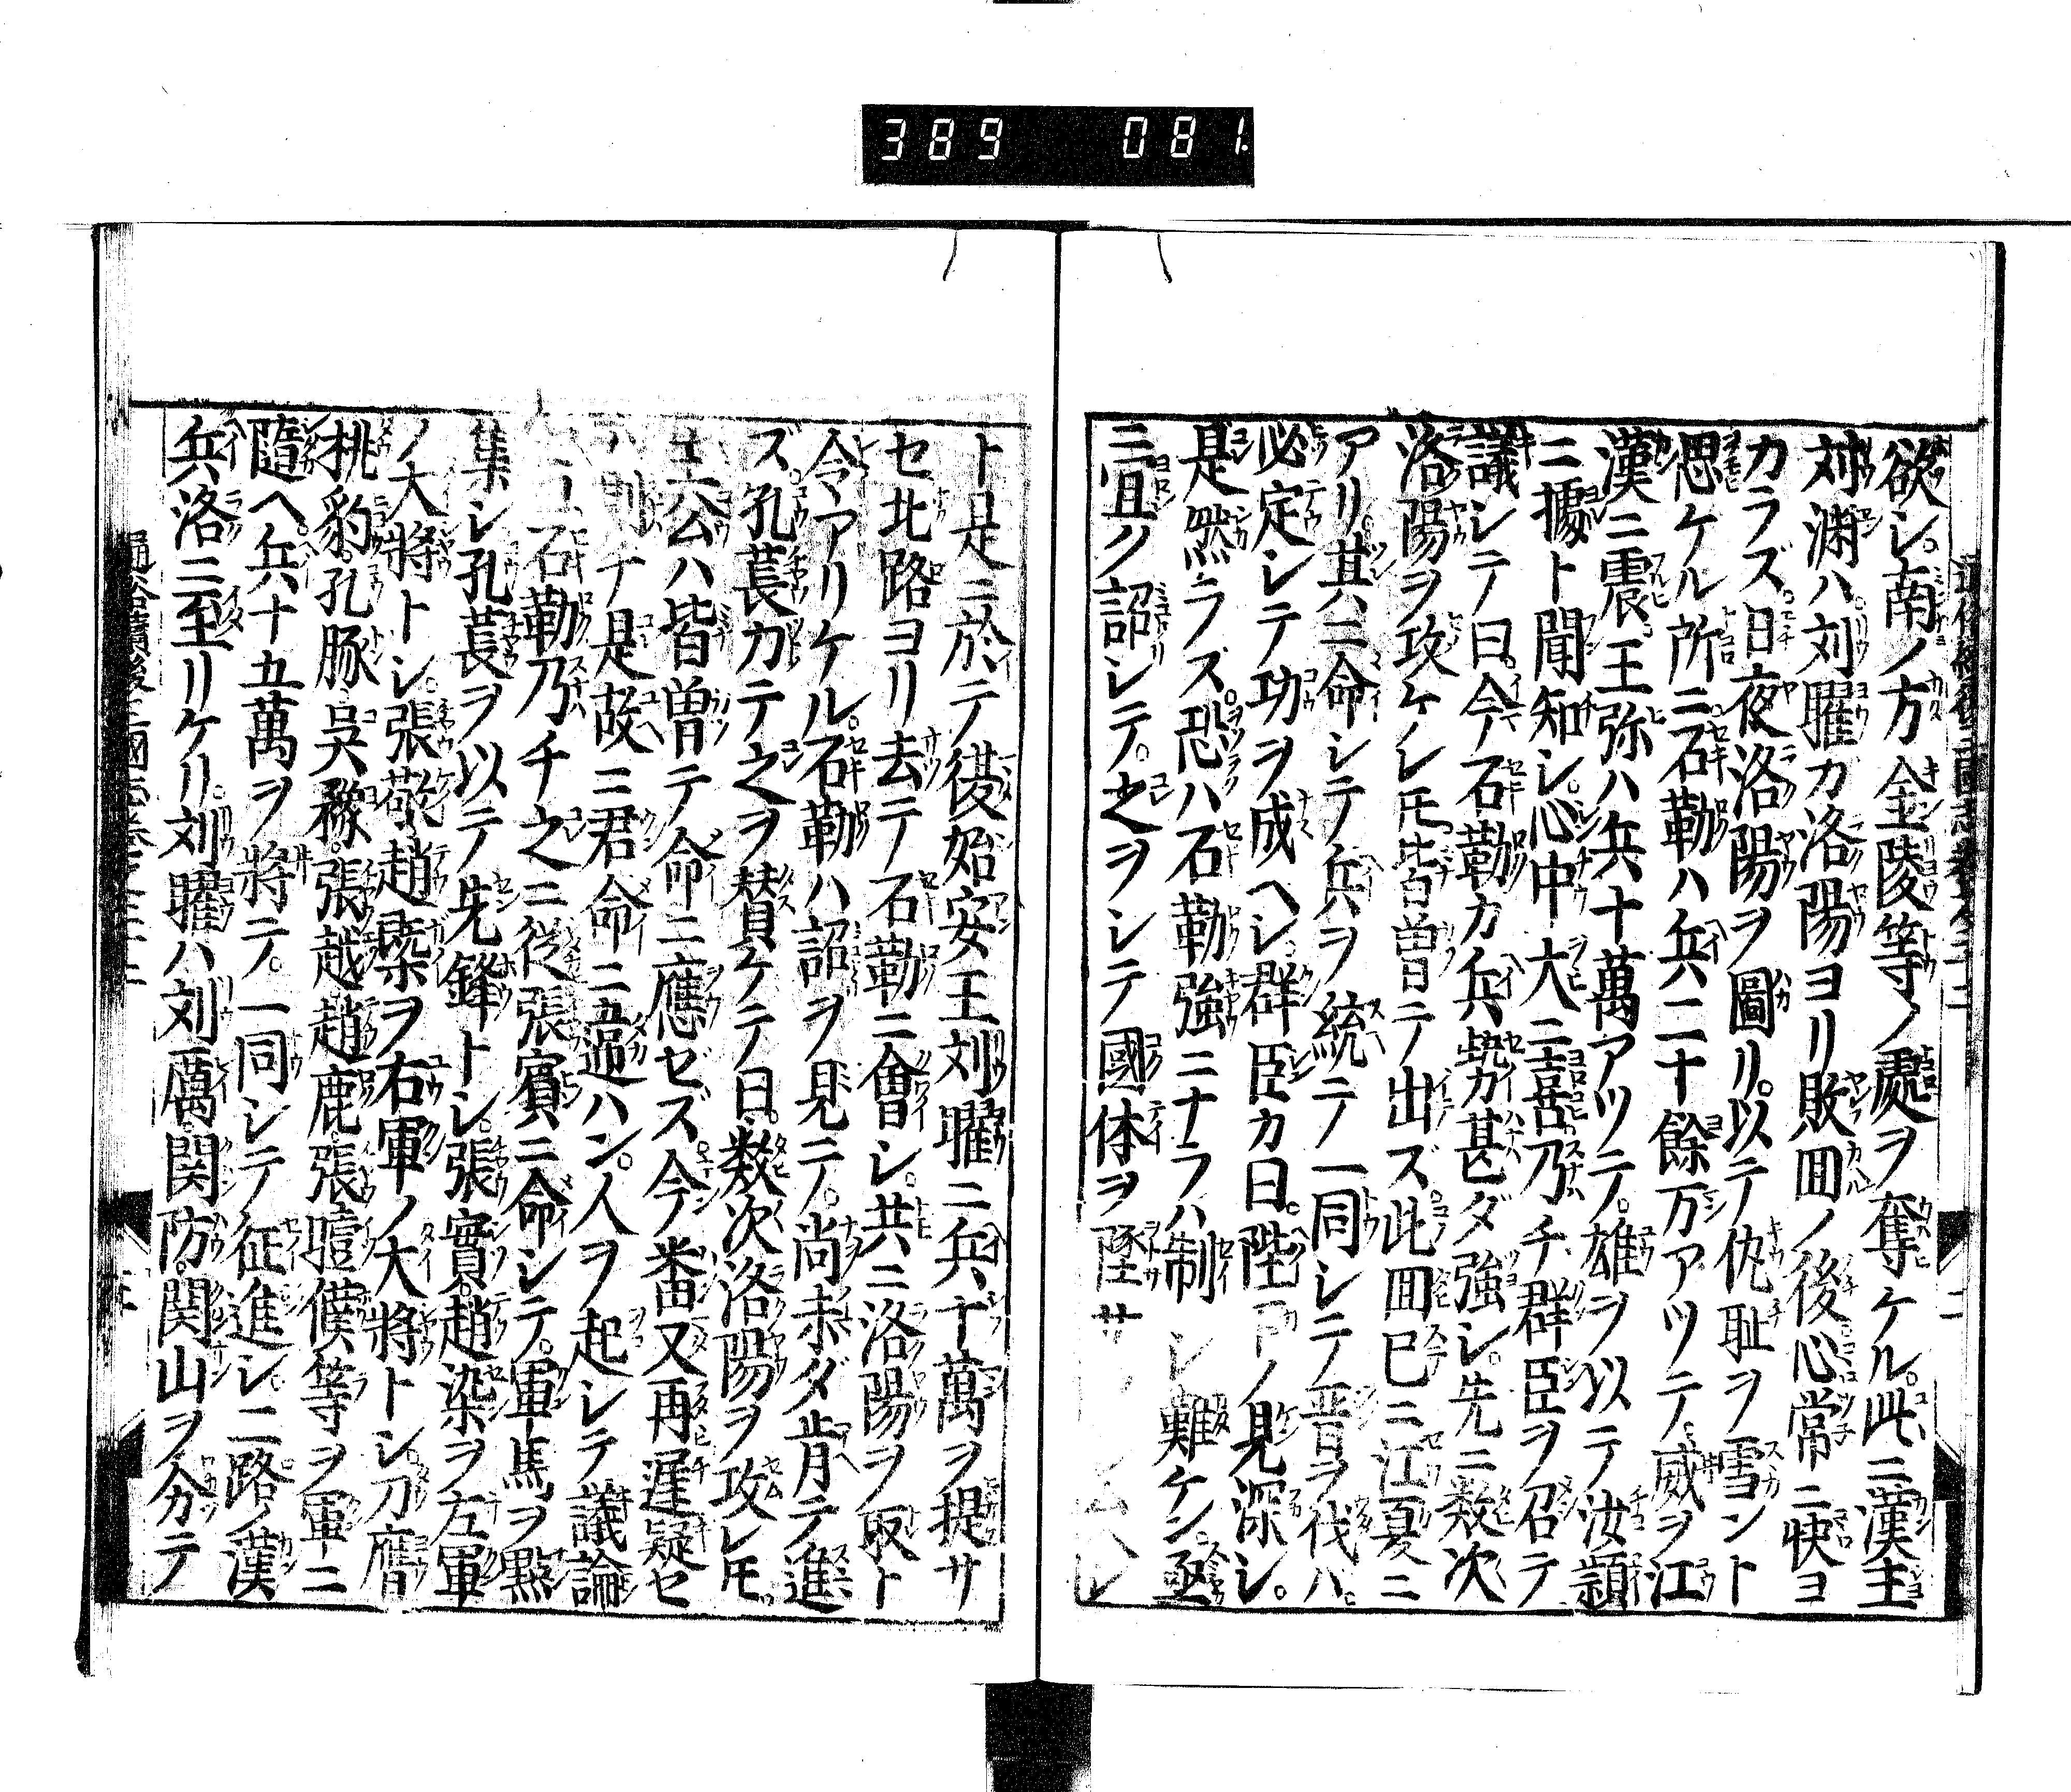 389 081.
欲シ。南ノ方金陵等ノ處ヲ奪ケル。此ニ漢主
刘渊ハ刘曜カ洛陽ヨリ敗回ノ後心常ニ快ヨ
カラズ。日夜洛陽ヲ圖リ。以テ仇耻ヲ雪ント
思ケル所ニ石勒ハ兵二十餘万アツテ。威ヲ江
漢ニ震王弥ハ兵十萬アツテ。雄ヲ以テ汝頴
ニ據ト聞知シ。心中大ニ喜乃チ群臣ヲ召テ
議シテ曰。今石勒カ兵势甚ダ強シ。先ニ数次
洛陽ヲ攻ケレ𪜈皆曽テ出ズ此回已ニ江夏ニ
アリ。其ニ命シテ兵ヲ統テ一同シテ晋ヲ伐ハ
必定シテ功ヲ成ヘシ。群臣カ曰。陛下ノ見深シ。
是然ラズ。恐ハ石勒強ニナラハ制シ難ケン。亟
ニ詔シテ。之ヲシテ國体ヲ墜サ
ト是ニ於テ後始安王刘曜ニ兵十萬ヲ提サ
セ北路ヨリ去テ石勒ニ會シ。共ニ洛陽ヲ取ト
令アリケル。石勒ハ詔ヲ見テ。尚未ダ肯テ進
ズ。孔萇ガテ之ヲ賛ケテ曰。数次洛陽ヲ攻レ𪜈
主公ハ皆曽テ命ニ應ゼズ。今番又再遅疑セ
ハ則チ是故ニ君命ニ違ハン。人ヲ起シテ議論
ニ石勒乃チ之ニ從張賓ニ命シテ。軍馬ヲ㸃
集シ孔萇ヲ以テ先鋒トシ。張實。趙染ヲ左軍
ノ大將トシ。張敬。趙槩ヲ右軍ノ大將トシ。刀膺
桃豹。孔豚。呉豫。張越趙鹿。張曀僕等ヲ軍ニ
隨ヘ。兵十五萬ヲ將テ。一同シテ征進シ。二路ノ漢
兵洛ニ至リケリ。刘曜ハ刘厲。関防。関山ヲ分カテ